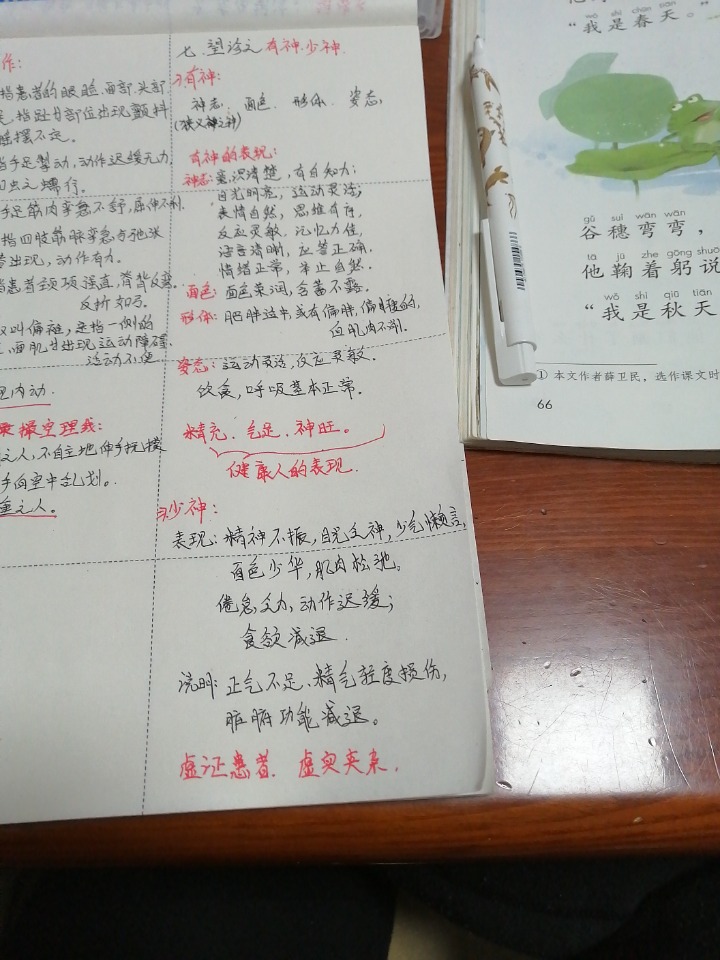 作:
指患者的眼脸、面部、头部
指趾甘部位出现颤抖
摇摆不定。
手足掣动,动作迟缓无力,
如虫之蠕行。
手足筋肉挛急不舒,屈伸不利.
指四肢筋脉挛急与弛张
出现,动作有力.
患者颈项强直,脊背反
反折如弓.
又叫偏瘫,是指一侧的
面肌甘出现运动障碍,
运动不便.
内动.
撮空理线:
之人,不自主地伸手抚摸
手向空中乱划。.
重之人。
七、望诊之有神.少神.
1.有神:
神志、面色、形体、姿态,
有神的表现:
神志:意识清楚,有自知力;
目光明亮,运动灵活;
表情自然,思维有序,
反应灵敏.记忆力佳,
语言清晰,应答正确.
情绪正常,举止自然.
面色:面色荣润,含蓄不露.
形体:肥胖适中,或有偏胖,偏瘦的,
但肌肉不削.
姿态:运动灵活,反应灵敏.
饮食,呼吸基本正常.
精充、气足、神旺。
健康人的表现.
少神:
表现:精神不振,目光乏神,少气懒言,
面色少华,肌肉松弛。
倦怠乏力,动作迟缓;
食欲减退.
说明:正气不足、精气轻度损伤,
脏腑功能减退。
虚证患者、虚实夹杂.
wǒ shì chūn tiān
“我是春天。”
gǔ suì wān wān
谷穗弯弯,
tā jū zhe gōng shuō
他鞠着躬说
wǒ shì qiū tiān
“我是秋天
① 本文作者薛卫民,选作课文时
66